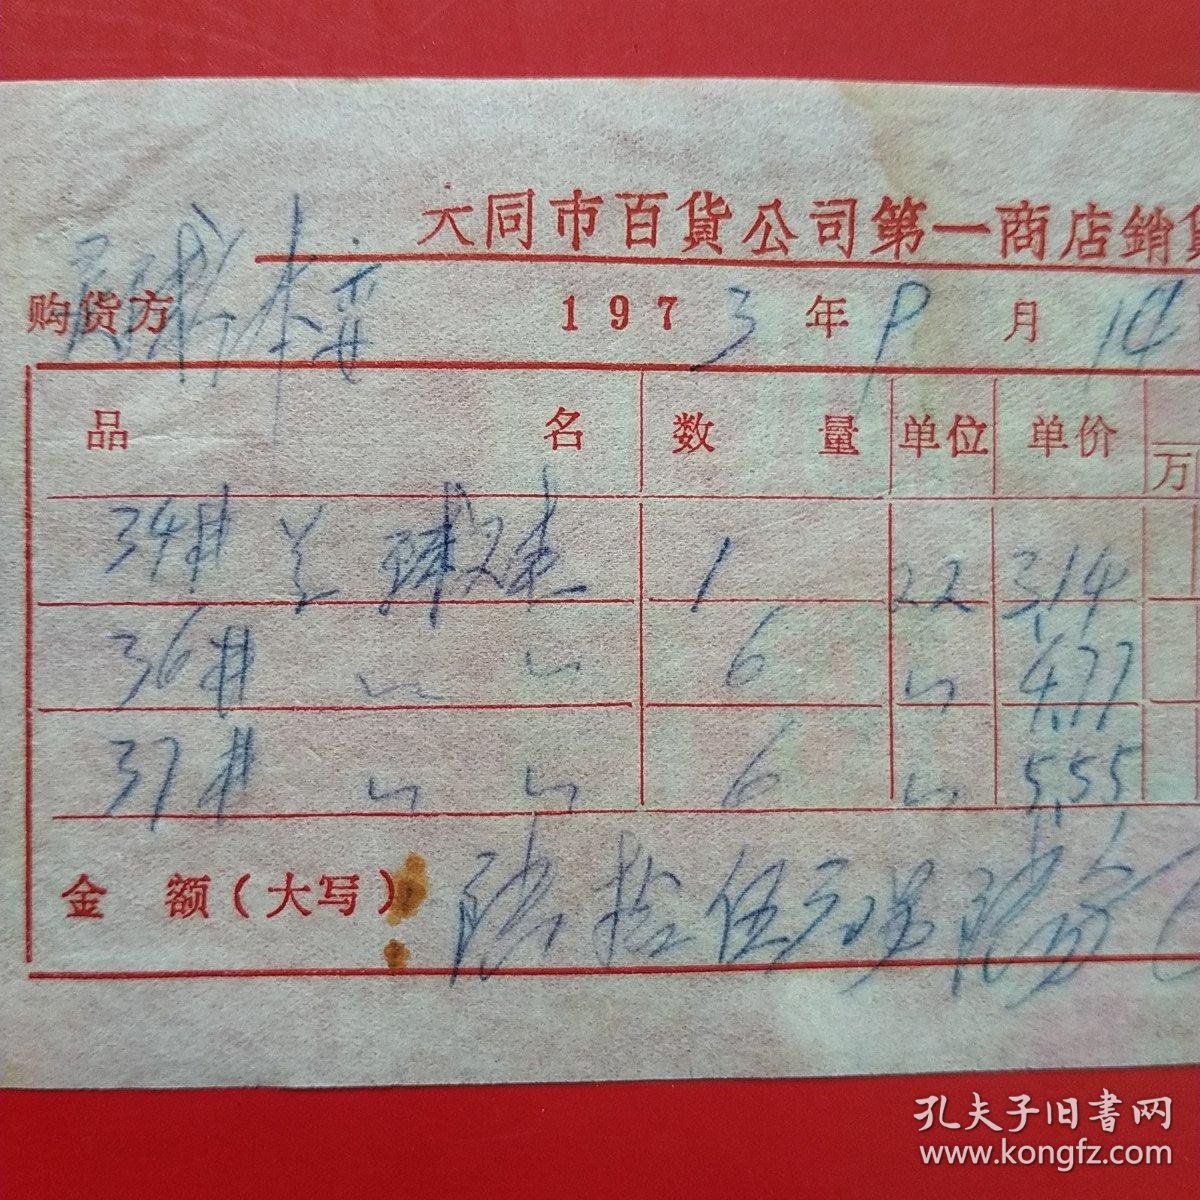 大同市百貨公司第一商店銷貨
购货方 1973年9月14
品名 数量 单位 单价 万
34# 兰球 1 22 3.14
36# 〃 〃 6 〃 4.77
37# 〃 〃 6 〃 5.55
金额(大写) 陆拾伍元零陆分
孔夫子旧書网
www.kongfz.com